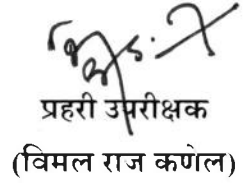 प्रहरी उपरीक्षक
(विमल राज कणेल)